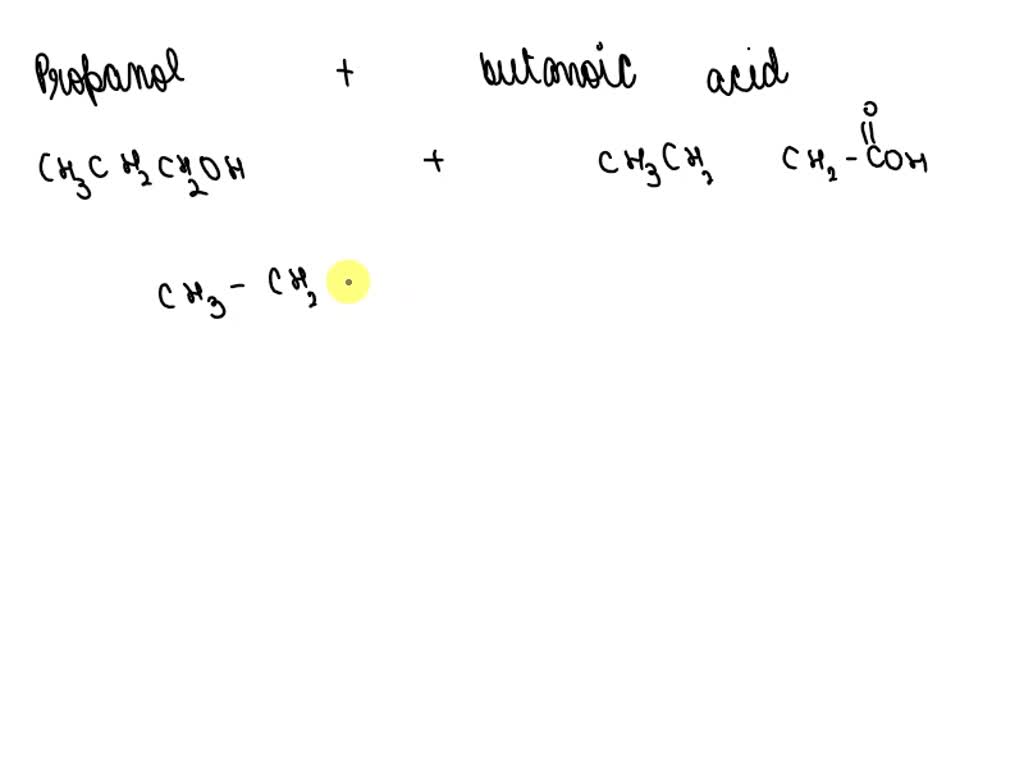 Propanol + butanoic acid
O
CH3CH2CH2OH + CH3CH2 CH2-COH
CH3-CH2